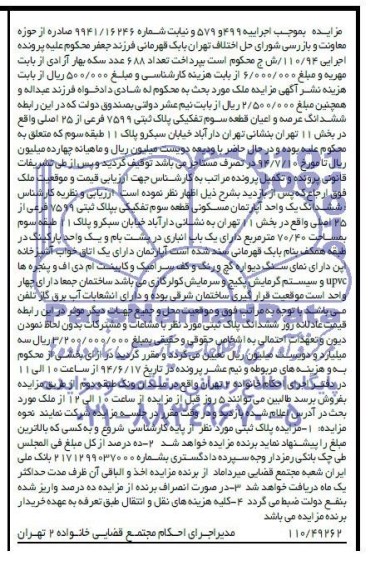 مزایده بموجب اجراییه ۴۹۹ و ۵۷۹ و نیابت شماره ۹۹۴۱/۱۶۲۴۶ صادره از حوزه
معاونت و بازرسی شورای حل اختلاف تهران بابک قهرمانی فرزند جعفر محکوم علیه پرونده
اجرایی ۱۱۰/۹۴/ش ج محکوم است بپرداخت تعداد ۶۸۸ عدد سکه بهار آزادی از بابت
مهریه و مبلغ ۶/۰۰۰/۰۰۰ از بابت هزینه کارشناسی و مبلغ ۵۰۰/۰۰۰ ریال از بابت
هزینه نشر آگهی مزایده ملک مورد بحث به محکوم له شادی دادخواه فرزند عبداله و
همچنین مبلغ ۲/۵۰۰/۰۰۰ ریال از بابت نیم عشر دولتی بصندوق دولت که در این رابطه
ششدانگ عرصه و اعیان قطعه سوم تفکیکی پلاک ثبتی ۷۵۹۹ فرعی از ۲۵ اصلی واقع
در بخش ۱۱ تهران بنشانی تهران دارآباد خیابان سبکرو پلاک ۱۱ طبقه سوم که متعلق به
محکوم علیه بوده و در حال حاضر با ودیعه دویست میلیون ریال و ماهیانه چهارده میلیون
ریال تا مورخ در تصرف مستاجر می باشد توقیف گردید و پس از طی تشریفات
قانونی پرونده و تکمیل پرونده مراتب به کارشناس جهت ارزیابی قیمت و موقعیت ملک
فوق ارجاع که پس از بازدید بشرح ذیل اظهار نظر نموده است ارزیابی و نظریه کارشناس
ششدانگ یک واحد آپارتمان مسکونی قطعه سوم تفکیکی پلاک ثبتی ۷۵۹۹ فرعی از
۲۵ اصلی واقع در بخش ۱۱ تهران به نشانی دارآباد خیابان سبکرو پلاک ۱۱ طبقه سوم
بمساحت ۷۰/۴۰ مترمربع دارای یک باب انباری در پشت بام و یک واحد پارکینگ در
طبقه همکف بنام بابک قهرمانی سند شده است آپارتمان دارای یک اتاق خواب آشپزخانه
این دارای نمای سنگ دیوار گچ و رنگ و کف سرامیک و کابینت ام دی اف و پنجره ها
upvc و سیستم گرمایش پکیج و سرمایش کولر گازی می باشد ساختمان جمعا دارای چهار
واحد است موقعیت قرارگیری ساختمان شرقی بوده و دارای انشعابات آب برق گاز تلفن
می باشد با توجه به مراتب فوق و موقعیت محل و جمیع جهات دیگر موثر در این رابطه
قیمت عادلانه روز ششدانگ پلاک ثبتی مورد نظر با مشاعات و مشترکات بدون لحاظ نمودن
دیون و تعهدات احتمالی به اشخاص حقوقی و حقیقی بمبلغ ۳/۲۰۰/۰۰۰/۰۰۰ ریال سه
میلیارد و دویست میلیون ریال تعیین می گردد و مقرر گردید در ازای بخشی از محکوم
به و هزینه های مربوطه و نیم عشر پرونده در تاریخ ۹۴/۶/۱۷ از ساعت ۱۰ الی ۱۱
در دفتر اجرای احکام خانواده ۲ تهران واقع در میدان ونک طبقه دوم از طریق مزایده
بفروش برسد طالبین می توانند ۵ روز قبل از مزایده از ساعت ۱۰ الی ۱۲ از ملک مورد
بحث در آدرس اعلام شده بازدید و در وقت مقرر در جلسه مزایده شرکت نمایند نحوه
مزایده: ۱-مزایده پلاک ثبتی مورد نظر از پایه کارشناسی شروع و به کسی که بالاترین
مبلغ را پیشنهاد نماید برنده مزایده خواهد شد ۲-ده درصد از کل مبلغ فی المجلس
طی چک بانکی رمزدار وجه سپرده دادگستری بشماره ۲۱۷۱۲۹۹۰۳۷۰۰۰ بانک ملی
ایران شعبه مجتمع قضایی میرداماد از برنده مزایده اخذ و الباقی آن ظرف مدت حداکثر
یک ماه دریافت خواهد شد ۳-در صورت انصراف برنده از مزایده ده درصد واریز شده
بنفع دولت ضبط می گردد ۴-کلیه هزینه های نقل و انتقال طبق تعرفه به عهده خریدار
برنده مزایده می باشد
۱۱۰/۴۹۲۶۲ مدیر اجرای احکام مجتمع قضایی خانواده ۲ تهران